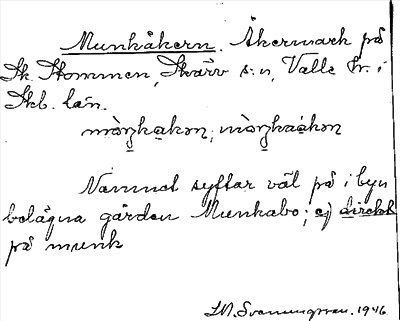 Munkåkern. Åkermark på
Sk. Stommen, Skärv s:n, Valle hr. i
Skb. län.
Namnet syftar väl på i byn
belägna gården Munkabo; ej direkt
på munk
1946.